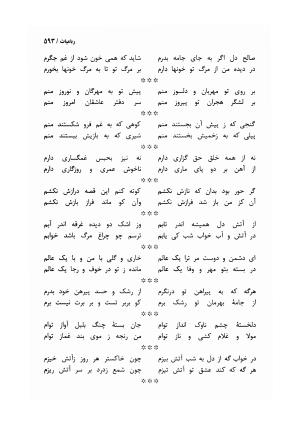 رباعیات / ۵۹۳
صالح دل اگر به جای جامه بدرم شاید که همی خون شود از غم جگرم
در دیده من از مرگ تو خونها دارم بر مرگ تو تا به مرگ خونها بخورم
***
بر دلسوزی و مهربان و رنجور منم پیش تو به مهرگان و نوروز منم
بر لشگر هجران تو پیروز منم سر دفتر عاشقان امروز منم
***
گنجی که ز پیش آن بجستند منم کوهی که به غم فرو شکستند منم
پیلی که به زخمیش بخستند منم شیری که به بازیش ببستند منم
***
نه از همه خلق حق گزاری دارم نه نیز بحبس غمگساری دارم
از آهن بر دو پای ماری دارم ناخوش عمری و روزگاری دارم
***
گر حور بود بدان که نازش نکشم کوته کنم این قصه درازش نکشم
آن کز من باز شد فرازش نکشم وآن کو ماند فراز بازش نکشم
***
از آتش دل همیشه اندر تابم وز اشک دو دیده غرقه اندر آبم
در آتش و آب خواب شب کی یابم ترسم چو چراغ مرگ باشد خوابم
***
ای دشمن و دوست مر ترا یک عالم خاری و گلی با من و با یک عالم
در بسته بتو مهر و وفا یک عالم مانده ز تو در خوف و رجا یک عالم
***
هرگه که به پیراهن تو درنگرم از رشک و حسد پیرهن خود بدرم
از جامهٔ بهرمان تو رشک برم کو بربر تست و بر برت نیست برم
***
دلخستهٔ چشم ناوک انداز توام جان بستهٔ چنگ بلبل آواز توام
مولا و غلام کشی و ناز توام من رنجه ز موی بند غماز توام
***
در خواب گه از دل به شب آتش بیزم چون خاکستر هر روز زآتش خیزم
هر گه که کند عشق تو آتش تیزم چون شمع زدرد بر سر آتش ریزم
***